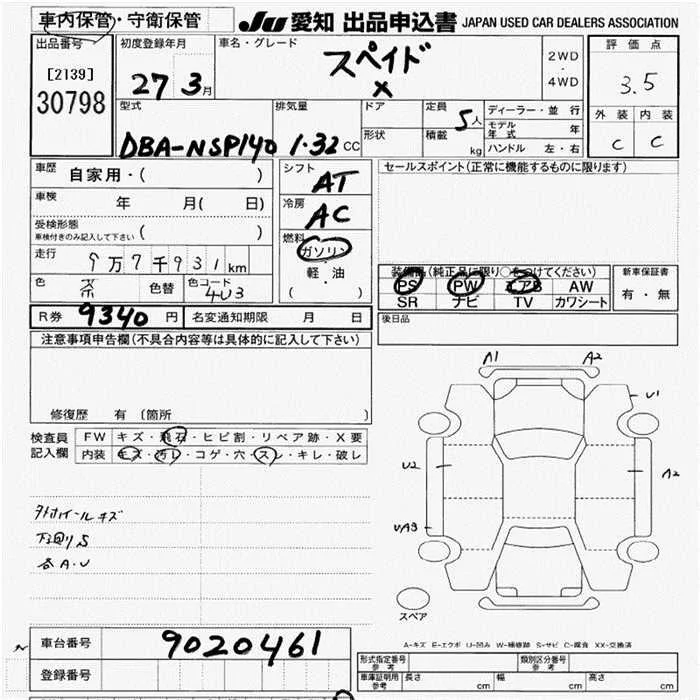 車内保管・守衛保管
JU 愛知 出品申込書 JAPAN USED CAR DEALERS ASSOCIATION
出品番号
[2139]
30798
初度登録年月
27 3月
車名・グレード
スペイド
X
2WD
・
4WD
評価点
3.5
外装 内装
C C
型式
DBA-NSP140
排気量
1.32 CC
ドア
形状
定員
5人
積載
kg
ディーラー・並行
モデル年式 年
ハンドル 左・右
車歴
自家用・( )
車検
年 月( 日)
受検形態
車検付きのみ記入して下さい ( )
走行
9万7千931km
色
色替
色コード
4U3
シフト
AT
冷房
AC
燃料
ガソリン
・
軽・油
( )
セールスポイント(正常に機能するものに限ります)
装備品(純正品に限り○をつけてください)
PS PW エアB AW
SR ナビ TV カワシート
新車保証書
有・無
後日品
R券 9340 円
名変通知期限 月 日
注意事項申告欄(不具合内容等は具体的に記入して下さい)
修復歴 有 〔箇所 〕
検査員
記入欄
FW キズ・飛石・ヒビ割・リペア跡・X要
内装 キズ・汚レ・コゲ・穴・スレ・キレ・破レ
外ホイールキズ
下廻りS
各A・U
A1 A2
U1
U2
A2
UA3
スペア
A-キズ E-エクボ U-凹み W-補修跡 S-サビ C-腐食 XX-交換済
車台番号
9020461
登録番号
形式指定番号
参考
類別区分番号
参考
車庫証明用
参考
長さ cm 幅 cm 高さ cm